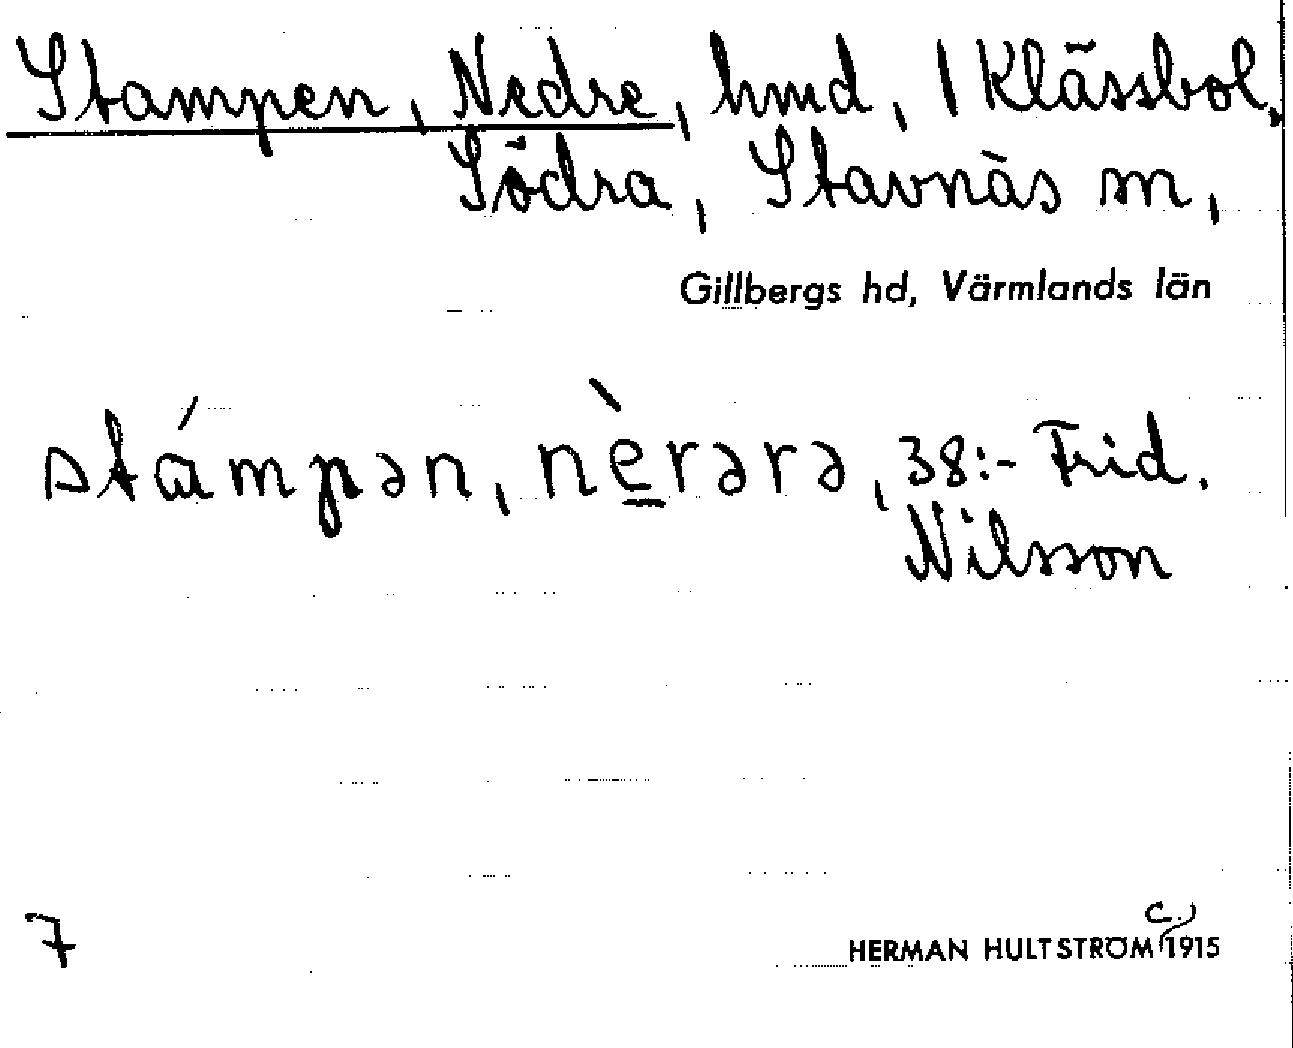 Stampen, Nedre, hmd, 1 Klässbol,
Södra, Stavnäs sn,
Gillbergs hd, Värmlands län
stámpən, nè̱rərə, 38:- Frid.
Nilsson
7
HERMAN HULTSTRÖM (c.) 1915